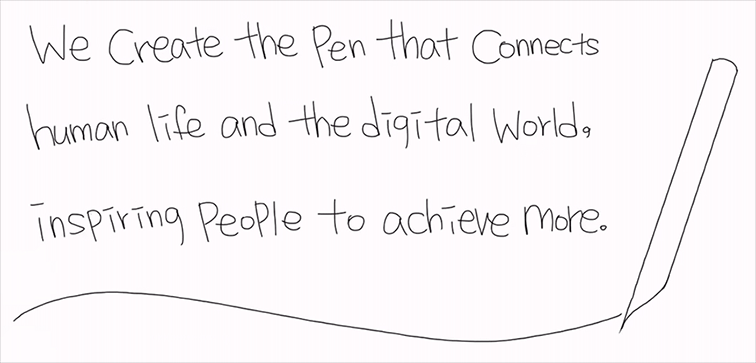 We Create the Pen that Connects
human life and the digital World,
inspiring People to achieve more.